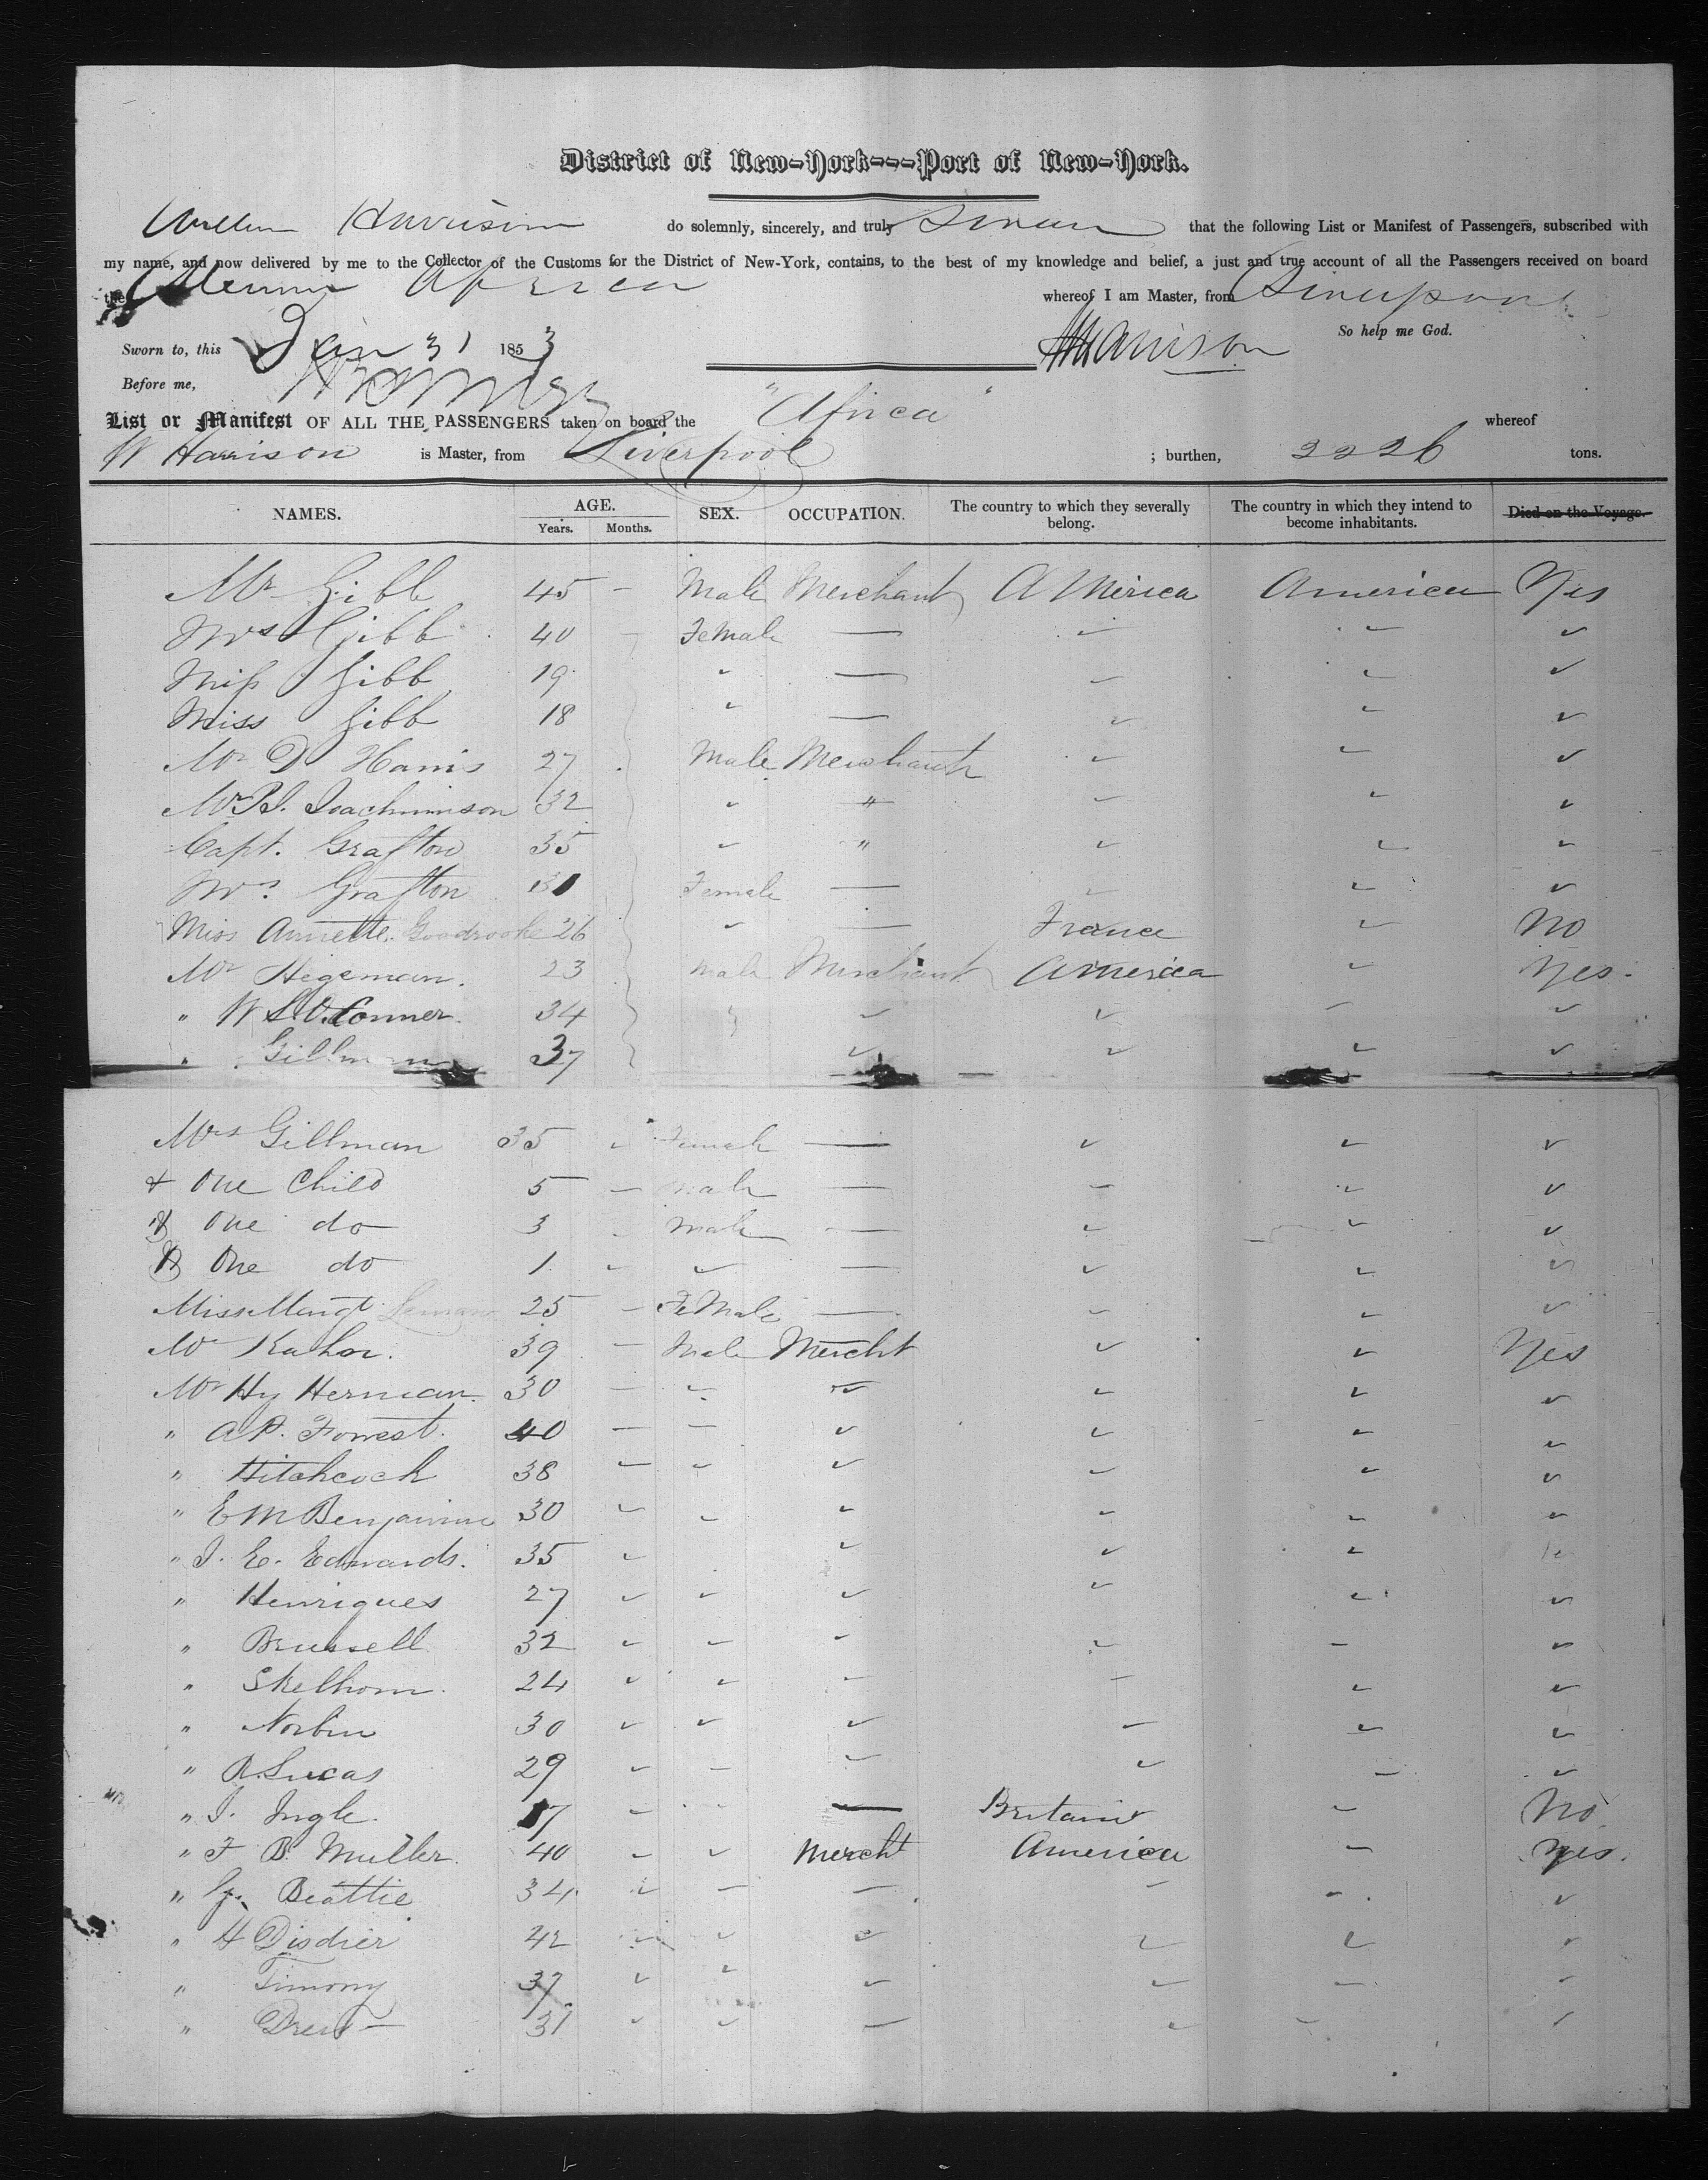 District of New-York---Port of New-York.
William Harrison do solemnly, sincerely, and truly Swear that the following List or Manifest of Passengers, subscribed with
my name, and now delivered by me to the Collector of the Customs for the District of New-York, contains, to the best of my knowledge and belief, a just and true account of all the Passengers received on board
the Africa whereof I am Master, from Liverpool
So help me God.
Sworn to, this Jan 31 1853 WHarrison
Before me,
List or Manifest OF ALL THE PASSENGERS taken on board the "Africa" whereof
W Harrison is Master, from Liverpool ; burthen, 2226 tons.
NAMES. AGE. Years. Months. SEX. OCCUPATION. The country to which they severally belong. The country in which they intend to become inhabitants. Died on the Voyage.
Mr Gibb 45 - Male Merchant America America Yes
Mrs Gibb 40 - Female — " " "
Miss Gibb 19 " — " " "
Miss Gibb 18 " — " " "
Mr D Harris 27 Male Merchant " " "
Mr Joachimson 32 " " " " "
Capt. Grafton 35 " " " " "
Mrs. Grafton 31 Female — " " "
Miss Annette 26 " — France " No
Mr Hegeman. 23 Male Merchant America " Yes.
" W S O.Conner. 34 " " " " "
" Gillman 37 " " " "
Mrs Gillman 35 " Female — " " "
+ One Child 5 - Male — " " "
One do 3 Male — " " "
One do 1. " " — " " "
Miss Margt 25 - Female — " " "
Mr Kahn. 39 - Male Mercht " " Yes
Mr Hy Herman. 30 - " " " " "
" A.P. Forrest. 40 - - " " " "
" Hitchcock 38 " " " " " "
" E M Benjamin 30 " " " " " "
" J. E. Edwards. 35 " " " " "
" Henriques 27 " " " " " "
" Brussell 32 " " " " " "
" Skelhorn. 24 " " " " " "
" Norbin 30 " " " " " "
" R. Lucas 29 " " " " " "
" J. Ingle. 17 " " — Britain " No.
" F. B. Muller. 40 " " Mercht America " Yes.
" G. Beattie 34. " " " " " "
" H Disdier 42 " " " " " "
" Timony 37. " " " " " "
" Drew — 31 " " " " " "